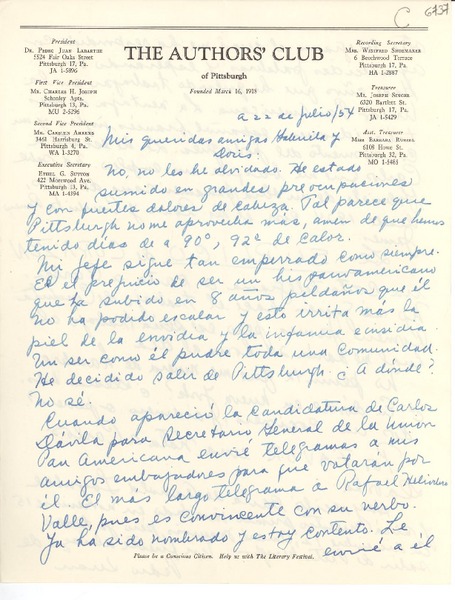 C 6737
President
DR. PEDRO JUAN LABARTHE
5524 Fair Oaks Street
Pittsburgh 17, Pa.
JA 1-5896
First Vice President
MR. CHARLES H. JOSEPH
Schenley Apts.
Pittsburgh 13, Pa.
MU 2-5296
Second Vice President
MR. CARMEN AHRENS
Pittsburgh 4, Pa.
WA 1-3270
Executive Secretary
ETHEL G. SUTTON
422 Morewood Ave.
Pittsburgh 13, Pa.
MA 1-4394
THE AUTHORS' CLUB
of Pittsburgh
Founded March 16, 1918
Recording Secretary
MRS. WINIFRED SHOEMAKER
6 Beechwood Terrace
Pittsburgh 17, Pa.
HA 1-2887
Treasurer
MR. JOSEPH SINGER
6320 Bartlett St.
Pittsburgh 17, Pa.
JA 1-5429
Asst. Treasurer
MISS BARBARA
6108 Howe St.
Pittsburgh 32, Pa.
MO 1-5485
a 22 de julio/54
Mis queridas amigas Gabriela y
Doris:
No, no les he olvidado. He estado
sumido en grandes preocupaciones
y con fuertes dolores de cabeza. Tal parece que
Pittsburgh no me aprovecha más, amén de que hemos
tenido días de a 90°, 92° de calor.
Mi jefe sigue tan emperrado como siempre.
Es el prejuicio de ser un hispanoamericano
que ha subido en 8 años peldaños que él
no ha podido escalar y esto irrita más la
piel de la envidia y la infamia e insidia.
Un ser como él pudre toda una comunidad.
He decidido salir de Pittsburgh ¿A dónde?
No sé.
Cuando apareció la candidatura de Carlos
Dávila para Secretario General de la Unión
Pan Americana envié telegramas a mis
amigos embajadores para que votarán por
él. El más largo telegrama a Rafael Heliodoro
Valle, pues es convincente con su verbo.
Ya ha sido nombrado y estoy contento. Le
envié a él
Please be a Conscious Citizen. Help us with The Literary Festival.